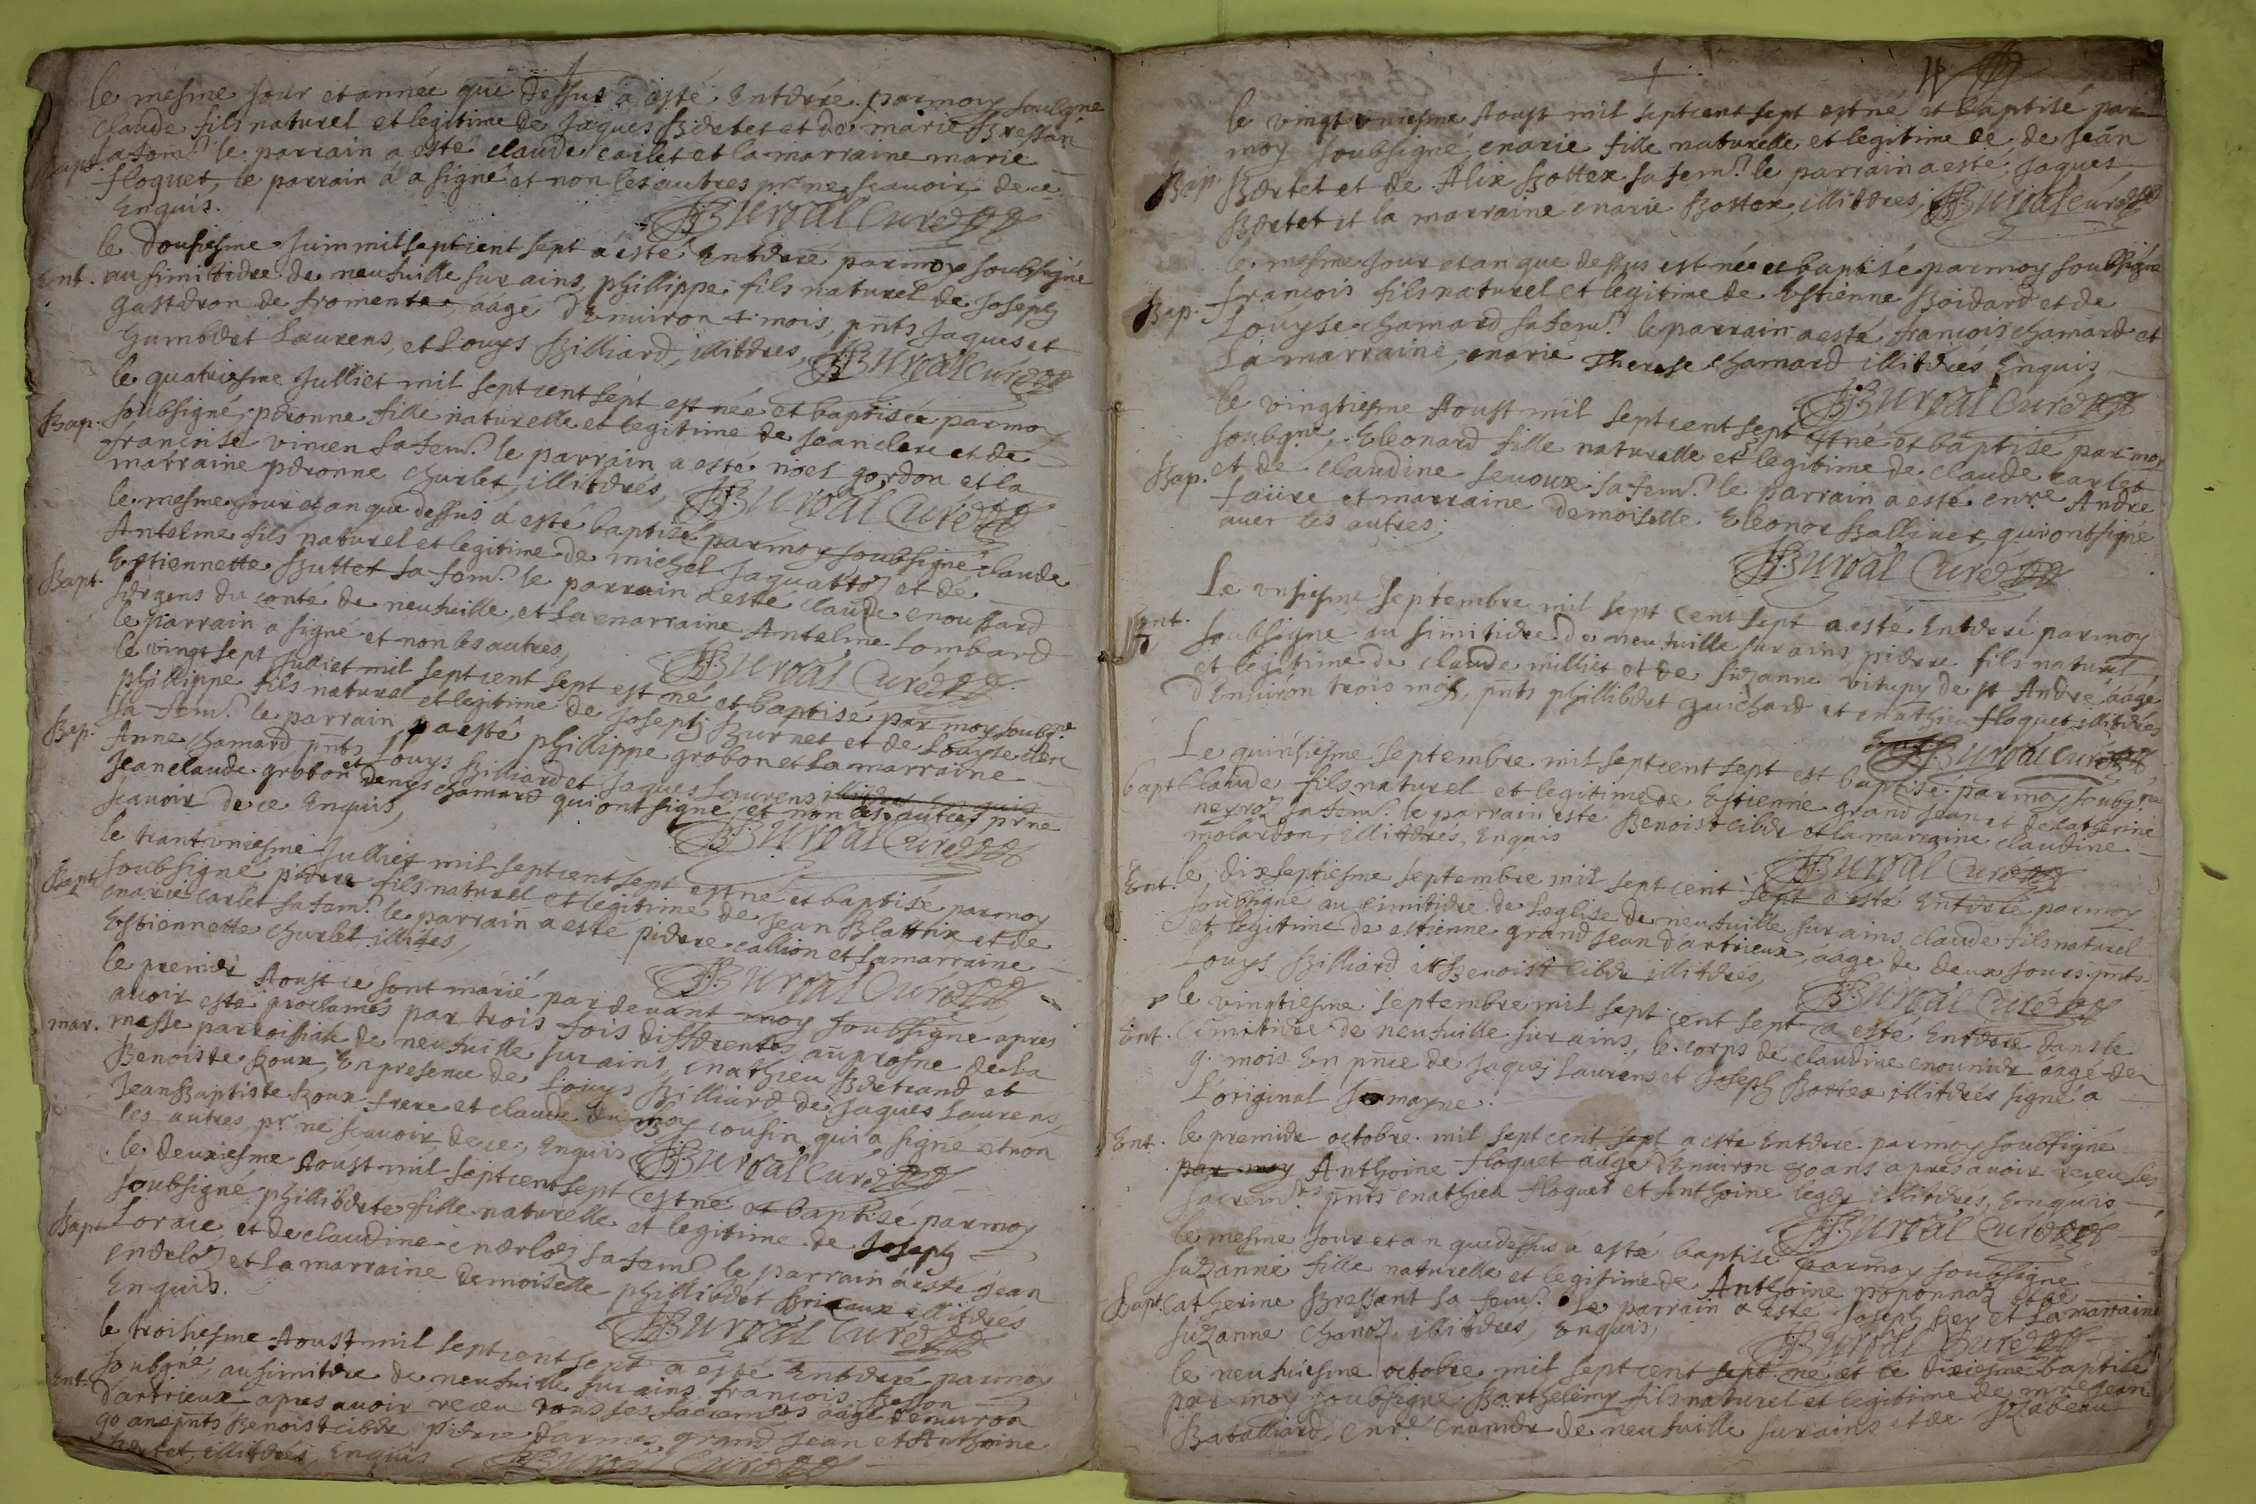 le mesme jour et année que dessus a esté Enterré par moy soubsigné
claude fils naturel et legitime de Jaques Bertet et de marie Bressan
Bapt. sa fem.e le parrain a esté claude carlet et la marraine marie
floquet, le parrain a signé et non les autres pr ne scavoir, de ce
Enquis. Burval Curé
le dousiesme Juin mil sept cent sept a esté Enterré par moy soubsigné
Ent. au simitiere de neufville sur ains, phillippe fils naturel de Joseph
de fromente, aagé d'Enuiron 4 mois, pnts Jaques et
Humbert Laurens, et Louys Billiard, illiteres, Burval Curé
le quatriesme Julliet mil sept cent sept est née et baptisée par moy
Bap. soubsigné, peronne fille naturelle et legitime de Jean clerc et de
francoise vincen sa fem.e le parrain a esté noel gordon et la
marraine peronne churlet, illiterés, Burval Curé
le mesme jour et an que dessus a esté baptisé par moy soubsigné claude
Antelme fils naturel et legitime de michel Jaquattoz et de
Bapt. Estiennette Buttet sa fem.e le parrain a esté claude
sergens du conté de neufville, et la marraine Antelme Lombard
le parrain a signé et non les autres, Burval Curé
le vingt sept Julliet mil sept cent sept est né et baptisé par moy soubgné
phillippe fils naturel et legitime de Joseph Burnet et de Louyse clerc
Bap. sa fem.e le parrain a esté phillippe grobon et la marraine
Anne chamard pnts Louys Billiard et Jaques Laurens
Jean claude grobon et denys chamard qui ont signé et non les autres pr ne
scavoir de ce Enquis, Burval Curé
le trant uniesme Julliet mil sept cent sept est né et baptisé par moy
Bapt. soubsigné pierre fils naturel et legitime de Jean Blattrix et de
marie carlet sa fem.e le parrain a esté pierre callion et la marraine
Estiennette churlet illites, Burval Curé
le premier Aoust ce sont marié par devant moy soubsigné apres
avoir esté proclamés par trois fois differentes au prosne de la
mar. messe parrossiale de neufville sur ains, mathieu Bertrand et
Benoiste Roux, En presence de Louys Billiard de Jaques Laurens,
Jean Baptiste Roux frere et claude du moy cousin qui a signé et non
les autres pr ne scavoir de ce; Enquis Burval Curé
le deuxiesme Aoust mil sept cent sept est né et baptisé par moy
soubsigné phillibérte fille naturelle et legitime de Joseph
Bapt. Lorrie, et de claudine merloz sa fem.e le parrain a esté Jean
merloz et la marraine demoiselle phillibert illiterés
Enquis. Burval Curé
le troisiesme Aoust mil sept cent sept a esté Enterré par moy
Ent. soubgné, au simitiere de neufville sur ains francois Besson
d'artrieux apres avoir receu tous ses sacremts aagé d'enuiron
90 ans pnts Benoist cibere pierre grand Jean et Anthoine
Bertet, illiterés, Enquis, Burval Curé
le vingt uniesme Aoust mil sept cent sept est né et baptisé par
moy soubsigné, marie fille naturelle et legitime de de Jean
Bap. Bertet et de Alix Bottex sa fem.e le parrain a esté, Jaques
Bertet et la marraine marie Bottex, illiteres, Burval Curé
le mesme jour et an que dessus est née et baptisé par moy soubsigné
Bap. francois fils naturel et legitime de Estienne Boidard et de
Louyse chamard sa fem.e le parrain a esté, francois chamard et
la marraine, marie Therese chamard illiterés Enquis
Burval Curé
le vingtiesme Aoust mil sept cent sept est né et baptisé par moy
soubgné, Eleonard fille naturelle et legitime de claude carlet
Bap. et de claudine seuoux sa fem.e le parrain a esté mre André
faüre et marraine demoiselle Eleonor Ballivet, qui ont signé
auec les autres; Burval Curé
Le unsiesme septembre mil sept cent sept a esté Enterré par moy
Ent. soubsigné au simitiere de neufville sur ains pierre fils naturel
et légitime de claude milliet et de suzanne vitupy de st André, aagé
d'Enuirón trois mois, pnts phillibert guichard et mathieu floquet illiterés
Burval Curé
Le quinsiesme septembre mil sept cent sept est baptisé par moy soubgné
bapt claude fils naturel et legitime de Estienne grand Jean et de catherine
neyroz sa fem.e le parrain esté Benoist cibere et la marraine claudine
molardon, illiterés, Enquis Burval Curé
Ent. le dixseptiesme septembre mil sept cent sept a esté Enterré par moy
soubsigné au cimitiere de l'eglise de neufville sur ains claude fils naturel
et legitime de estienne grand Jean d'artrieux, aagé de deux jours, pnts
Louys Billiard et Benoist cibere illiteres, Burval Curé
le vingtiesme septembre mil sept cent sept a esté Enterré dans le
Ent. Cimitiére de neufville sur ains, le corps de claudine mounier aagé de
9. mois En pnce de Jaques Laurens et Joseph Bottex illiterés signé a
L'original
Ent. le premier octobre mil sept cent sept a esté Enterré par moy soubsigné
par moy Anthoine floquet aagé d'Enuiron 80 ans apres avoir receu ses
sacrem.ts pnts mathieu floquet et Anthoine leger illiterés, Enquis
Burval Curé
le mesme jour et an que dessus a esté baptisé par moy soubsigné
suzanne fille naturelle et legitime de Anthoine poponnaz et de
Bapt. catherine Bressant sa fem.e Le parrain a esté Joseph Rey et la marraine
suzanne chanoz, illiteres, Enquis, Burval Curé
le neufuiesme octobre mil sept cent sept né et le dixiesme baptisé
par moy soubsigné Barthelemy fils naturel et legitime de mre Jean
Bataillard, mre mounier de neufville sur ains et de Izabeau